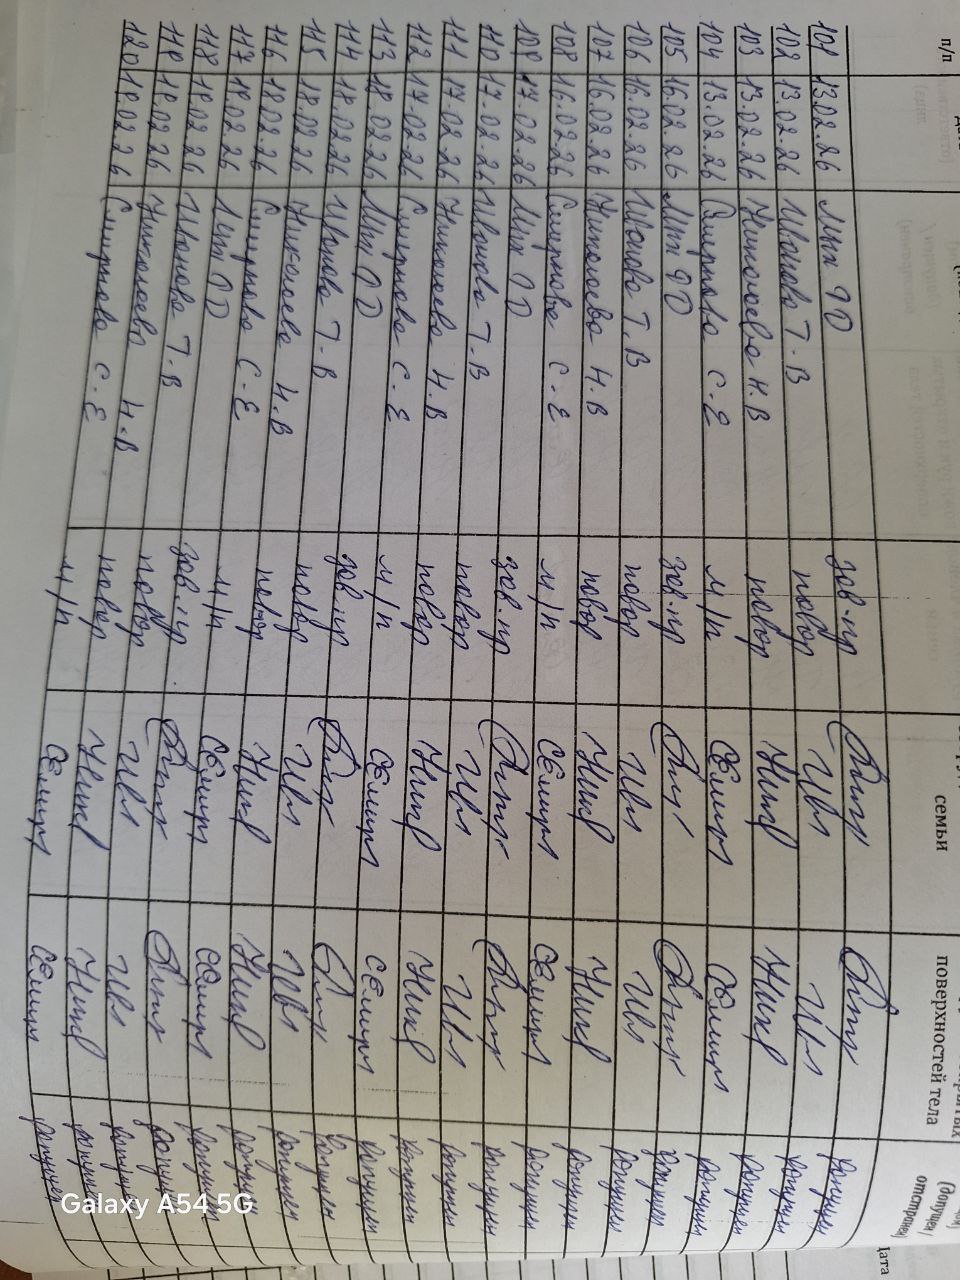 п/п
семьи
поверхностей тела
(допущен /
отстранен)
Дата
101 13.02.26 Лит О D зав.пр Лит Лит допущен
102 13.02.26 Иванова Т.В повар Ив Ив допущен
103 13.02.26 Николаева Н.В повар Ник Ник допущен
104 13.02.26 Смирнова С.Е м/п СЕмир СЕмир допущен
105 16.02.26 зав.пр допущен
106 16.02.26 Иванова Т.В повар Ив Ив допущен
107 16.02.26 Николаева Н.В повар Ник Ник допущен
108 16.02.26 Смирнова С.Е м/п СЕмир СЕмир допущен
109 17.02.26 зав.пр допущен
110 17.02.26 Иванова Т.В повар Ив Ив допущен
111 17.02.26 Николаева Н.В повар Ник Ник допущен
112 17.02.26 Смирнова С.Е м/п СЕмир СЕмир допущен
113 18.02.26 зав.пр допущен
114 18.02.26 Иванова Т.В повар Ив Ив допущен
115 18.02.26 Николаева Н.В повар Ник Ник допущен
116 18.02.26 Смирнова С.Е м/п СЕмир СЕмир допущен
117 19.02.26 зав.пр допущен
118 19.02.26 Иванова Т.В повар Ив Ив допущен
119 19.02.26 Николаева Н.В повар Ник Ник допущен
120 19.02.26 Смирнова С.Е м/п СЕмир СЕмир допущен
Galaxy A54 5G